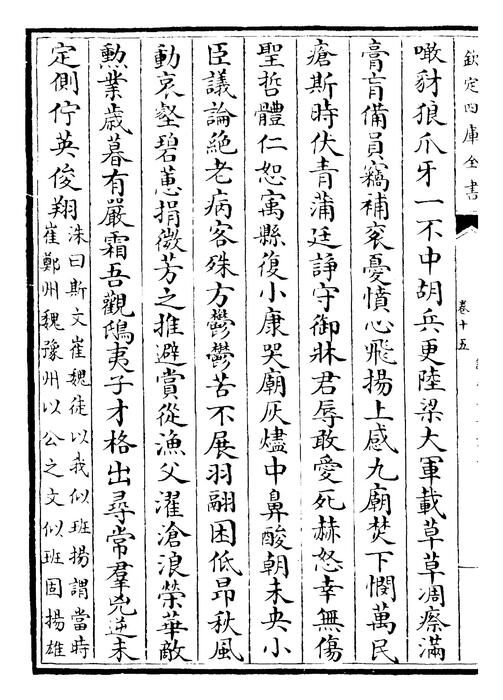 欽定四庫全書
卷十五
噉豺狼爪牙一不中胡兵更陸梁大軍載草草凋瘵滿
膏肓備員竊補衮憂憤心飛揚上感九廟焚下憫萬民
瘡斯時伏青蒲廷諍守御牀君辱敢愛死赫怒幸無傷
聖哲體仁恕寓縣復小康哭廟灰燼中鼻酸朝未央小
臣議論絶老病客殊方鬱鬱苦不展羽翮困低昂秋風
動哀壑碧蕙捐微芳之推避賞從漁父濯滄浪榮華敵
勲業歳暮有嚴霜吾觀鴟夷子才格出尋常羣兇逆未
定側佇英俊翔
洙曰斯文崔魏徒以我似班揚謂當時
崔鄭州魏豫州以公之文似班固揚雄